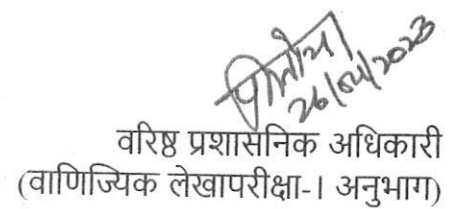 26/04/2023
वरिष्ठ प्रशासनिक अधिकारी
(वाणिज्यिक लेखापरीक्षा-I अनुभाग)